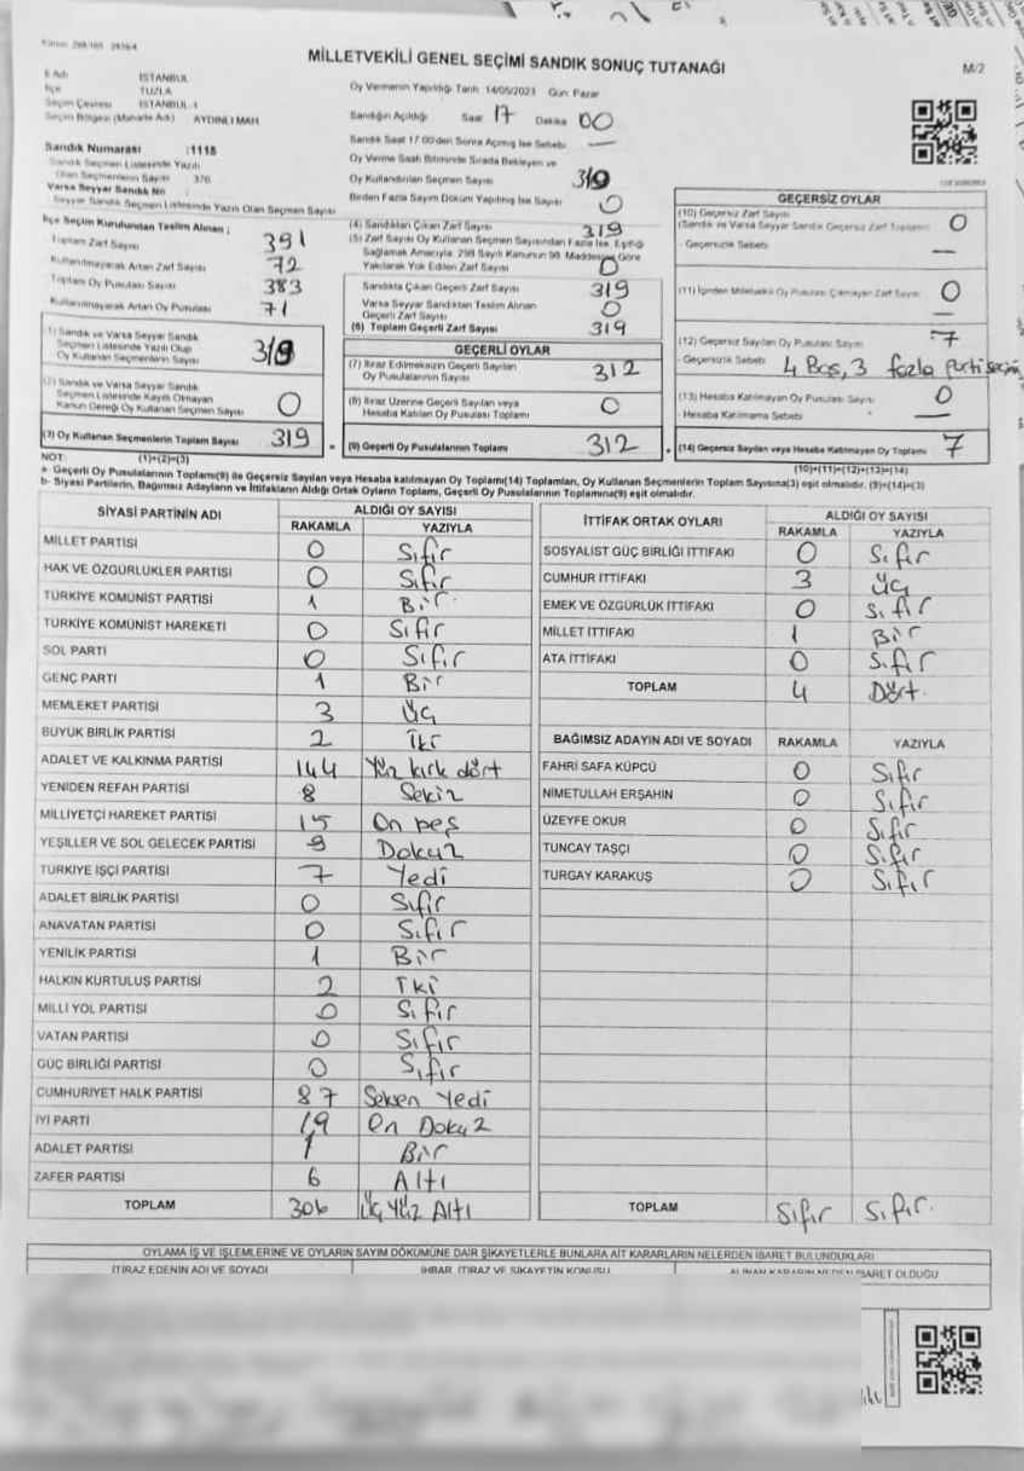 MİLLETVEKİLİ GENEL SEÇİMİ SANDIK SONUÇ TUTANAĞI
M/2
İl Adı İSTANBUL
İlçe TUZLA
Seçim Çevresi İSTANBUL-1
Seçim Bölgesi (Mahalle Adı) AYDINLI MAH.
Sandık Numarası :1118
Sandık Seçmen Listesinde Yazılı
Olan Seçmenlerin Sayısı 376
Varsa Seyyar Sandık No :
Seyyar Sandık Seçmen Listesinde Yazılı Olan Seçmen Sayısı
İlçe Seçim Kurulundan Teslim Alınan ;
Toplam Zarf Sayısı 391
Kullanılmayarak Artan Zarf Sayısı 72
Toplam Oy Pusulası Sayısı 383
Kullanılmayarak Artan Oy Pusulası 71
(1) Sandık ve Varsa Seyyar Sandık
Seçmen Listesinde Yazılı Olup
Oy Kullanan Seçmenlerin Sayısı 319
(2) Sandık ve Varsa Seyyar Sandık
Seçmen Listesinde Kayıtlı Olmayan
Kanun Gereği Oy Kullanan Seçmen Sayısı 0
(3) Oy Kullanan Seçmenlerin Toplam Sayısı 319
Oy Vermenin Yapıldığı Tarih: 14/05/2023 Gün: Pazar
Sandığın Açıldığı Saat 17 Dakika 00
Sandık Saat 17.00'den Sonra Açılmış İse Sebebi —
Oy Verme Saati Bitiminde Sırada Bekleyen ve
Oy Kullandırılan Seçmen Sayısı 319
Birden Fazla Sayım Döküm Yapılmış İse Sayısı 0
(4) Sandıktan Çıkan Zarf Sayısı 319
(5) Zarf Sayısı Oy Kullanan Seçmen Sayısından Fazla İse, Eşitliği
Sağlamak Amacıyla, 298 Sayılı Kanunun 98. Maddesine Göre
Yakılarak Yok Edilen Zarf Sayısı 0
Sandıkta Çıkan Geçerli Zarf Sayısı 319
Varsa Seyyar Sandıktan Teslim Alınan
Geçerli Zarf Sayısı 0
(6) Toplam Geçerli Zarf Sayısı 319
GEÇERLİ OYLAR
(7) İtiraz Edilmeksizin Geçerli Sayılan
Oy Pusulalarının Sayısı 312
(8) İtiraz Üzerine Geçerli Sayılan veya
Hesaba Katılan Oy Pusulası Toplamı 0
(9) Geçerli Oy Pusulalarının Toplamı 312
GEÇERSİZ OYLAR
(10) Geçersiz Zarf Sayısı
(Sandık ve Varsa Seyyar Sandık Geçersiz Zarf Toplamı) 0
- Geçersizlik Sebebi: —
(11) İçinden Milletvekili Oy Pusulası Çıkmayan Zarf Sayısı 0
(12) Geçersiz Sayılan Oy Pusulası Sayısı 7
- Geçersizlik Sebebi: 4 Boş, 3 fazla parti seçimi
(13) Hesaba Katılmayan Oy Pusulası Sayısı 0
- Hesaba Katılmama Sebebi: —
(14) Geçersiz Sayılan veya Hesaba Katılmayan Oy Toplamı 7
NOT: (1)+(2)=(3) (10)+(11)+(12)+(13)=(14)
a- Geçerli Oy Pusulalarının Toplamı(9) ile Geçersiz Sayılan veya Hesaba katılmayan Oy Toplamı(14) Toplamları, Oy Kullanan Seçmenlerin Toplam Sayısına(3) eşit olmalıdır. (9)+(14)=(3)
b- Siyasi Partilerin, Bağımsız Adayların ve İttifakların Aldığı Ortak Oyların Toplamı, Geçerli Oy Pusulalarının Toplamına(9) eşit olmalıdır.
SİYASİ PARTİNİN ADI ALDIĞI OY SAYISI
RAKAMLA YAZIYLA
MİLLET PARTİSİ 0 Sıfır
HAK VE ÖZGÜRLÜKLER PARTİSİ 0 Sıfır
TÜRKİYE KOMÜNİST PARTİSİ 1 Bir
TÜRKİYE KOMÜNİST HAREKETİ 0 Sıfır
SOL PARTİ 0 Sıfır
GENÇ PARTİ 1 Bir
MEMLEKET PARTİSİ 3 Üç
BÜYÜK BİRLİK PARTİSİ 2 İki
ADALET VE KALKINMA PARTİSİ 144 Yüz kırk dört
YENİDEN REFAH PARTİSİ 8 Sekiz
MİLLİYETÇİ HAREKET PARTİSİ 15 On beş
YEŞİLLER VE SOL GELECEK PARTİSİ 9 Dokuz
TÜRKİYE İŞÇİ PARTİSİ 7 Yedi
ADALET BİRLİK PARTİSİ 0 Sıfır
ANAVATAN PARTİSİ 0 Sıfır
YENİLİK PARTİSİ 1 Bir
HALKIN KURTULUŞ PARTİSİ 2 İki
MİLLİ YOL PARTİSİ 0 Sıfır
VATAN PARTİSİ 0 Sıfır
GÜÇ BİRLİĞİ PARTİSİ 0 Sıfır
CUMHURİYET HALK PARTİSİ 87 Seksen Yedi
İYİ PARTİ 19 On Dokuz
ADALET PARTİSİ 1 Bir
ZAFER PARTİSİ 6 Altı
TOPLAM 306 Üç Yüz Altı
İTTİFAK ORTAK OYLARI ALDIĞI OY SAYISI
RAKAMLA YAZIYLA
SOSYALİST GÜÇ BİRLİĞİ İTTİFAKI 0 Sıfır
CUMHUR İTTİFAKI 3 Üç
EMEK VE ÖZGÜRLÜK İTTİFAKI 0 Sıfır
MİLLET İTTİFAKI 1 Bir
ATA İTTİFAKI 0 Sıfır
TOPLAM 4 Dört.
BAĞIMSIZ ADAYIN ADI VE SOYADI RAKAMLA YAZIYLA
FAHRİ SAFA KÜPCÜ 0 Sıfır
NİMETULLAH ERŞAHİN 0 Sıfır
ÜZEYFE OKUR 0 Sıfır
TUNCAY TAŞÇI 0 Sıfır
TURGAY KARAKUŞ 0 Sıfır
TOPLAM Sıfır Sıfır.
OYLAMA İŞ VE İŞLEMLERİNE VE OYLARIN SAYIM DÖKÜMÜNE DAİR ŞİKAYETLERLE BUNLARA AİT KARARLARIN NELERDEN İBARET BULUNDUKLARI
İTİRAZ EDENİN ADI VE SOYADI İHBAR, İTİRAZ VE ŞİKAYETİN KONUSU ALINAN KARARIN NEDEN İBARET OLDUĞU